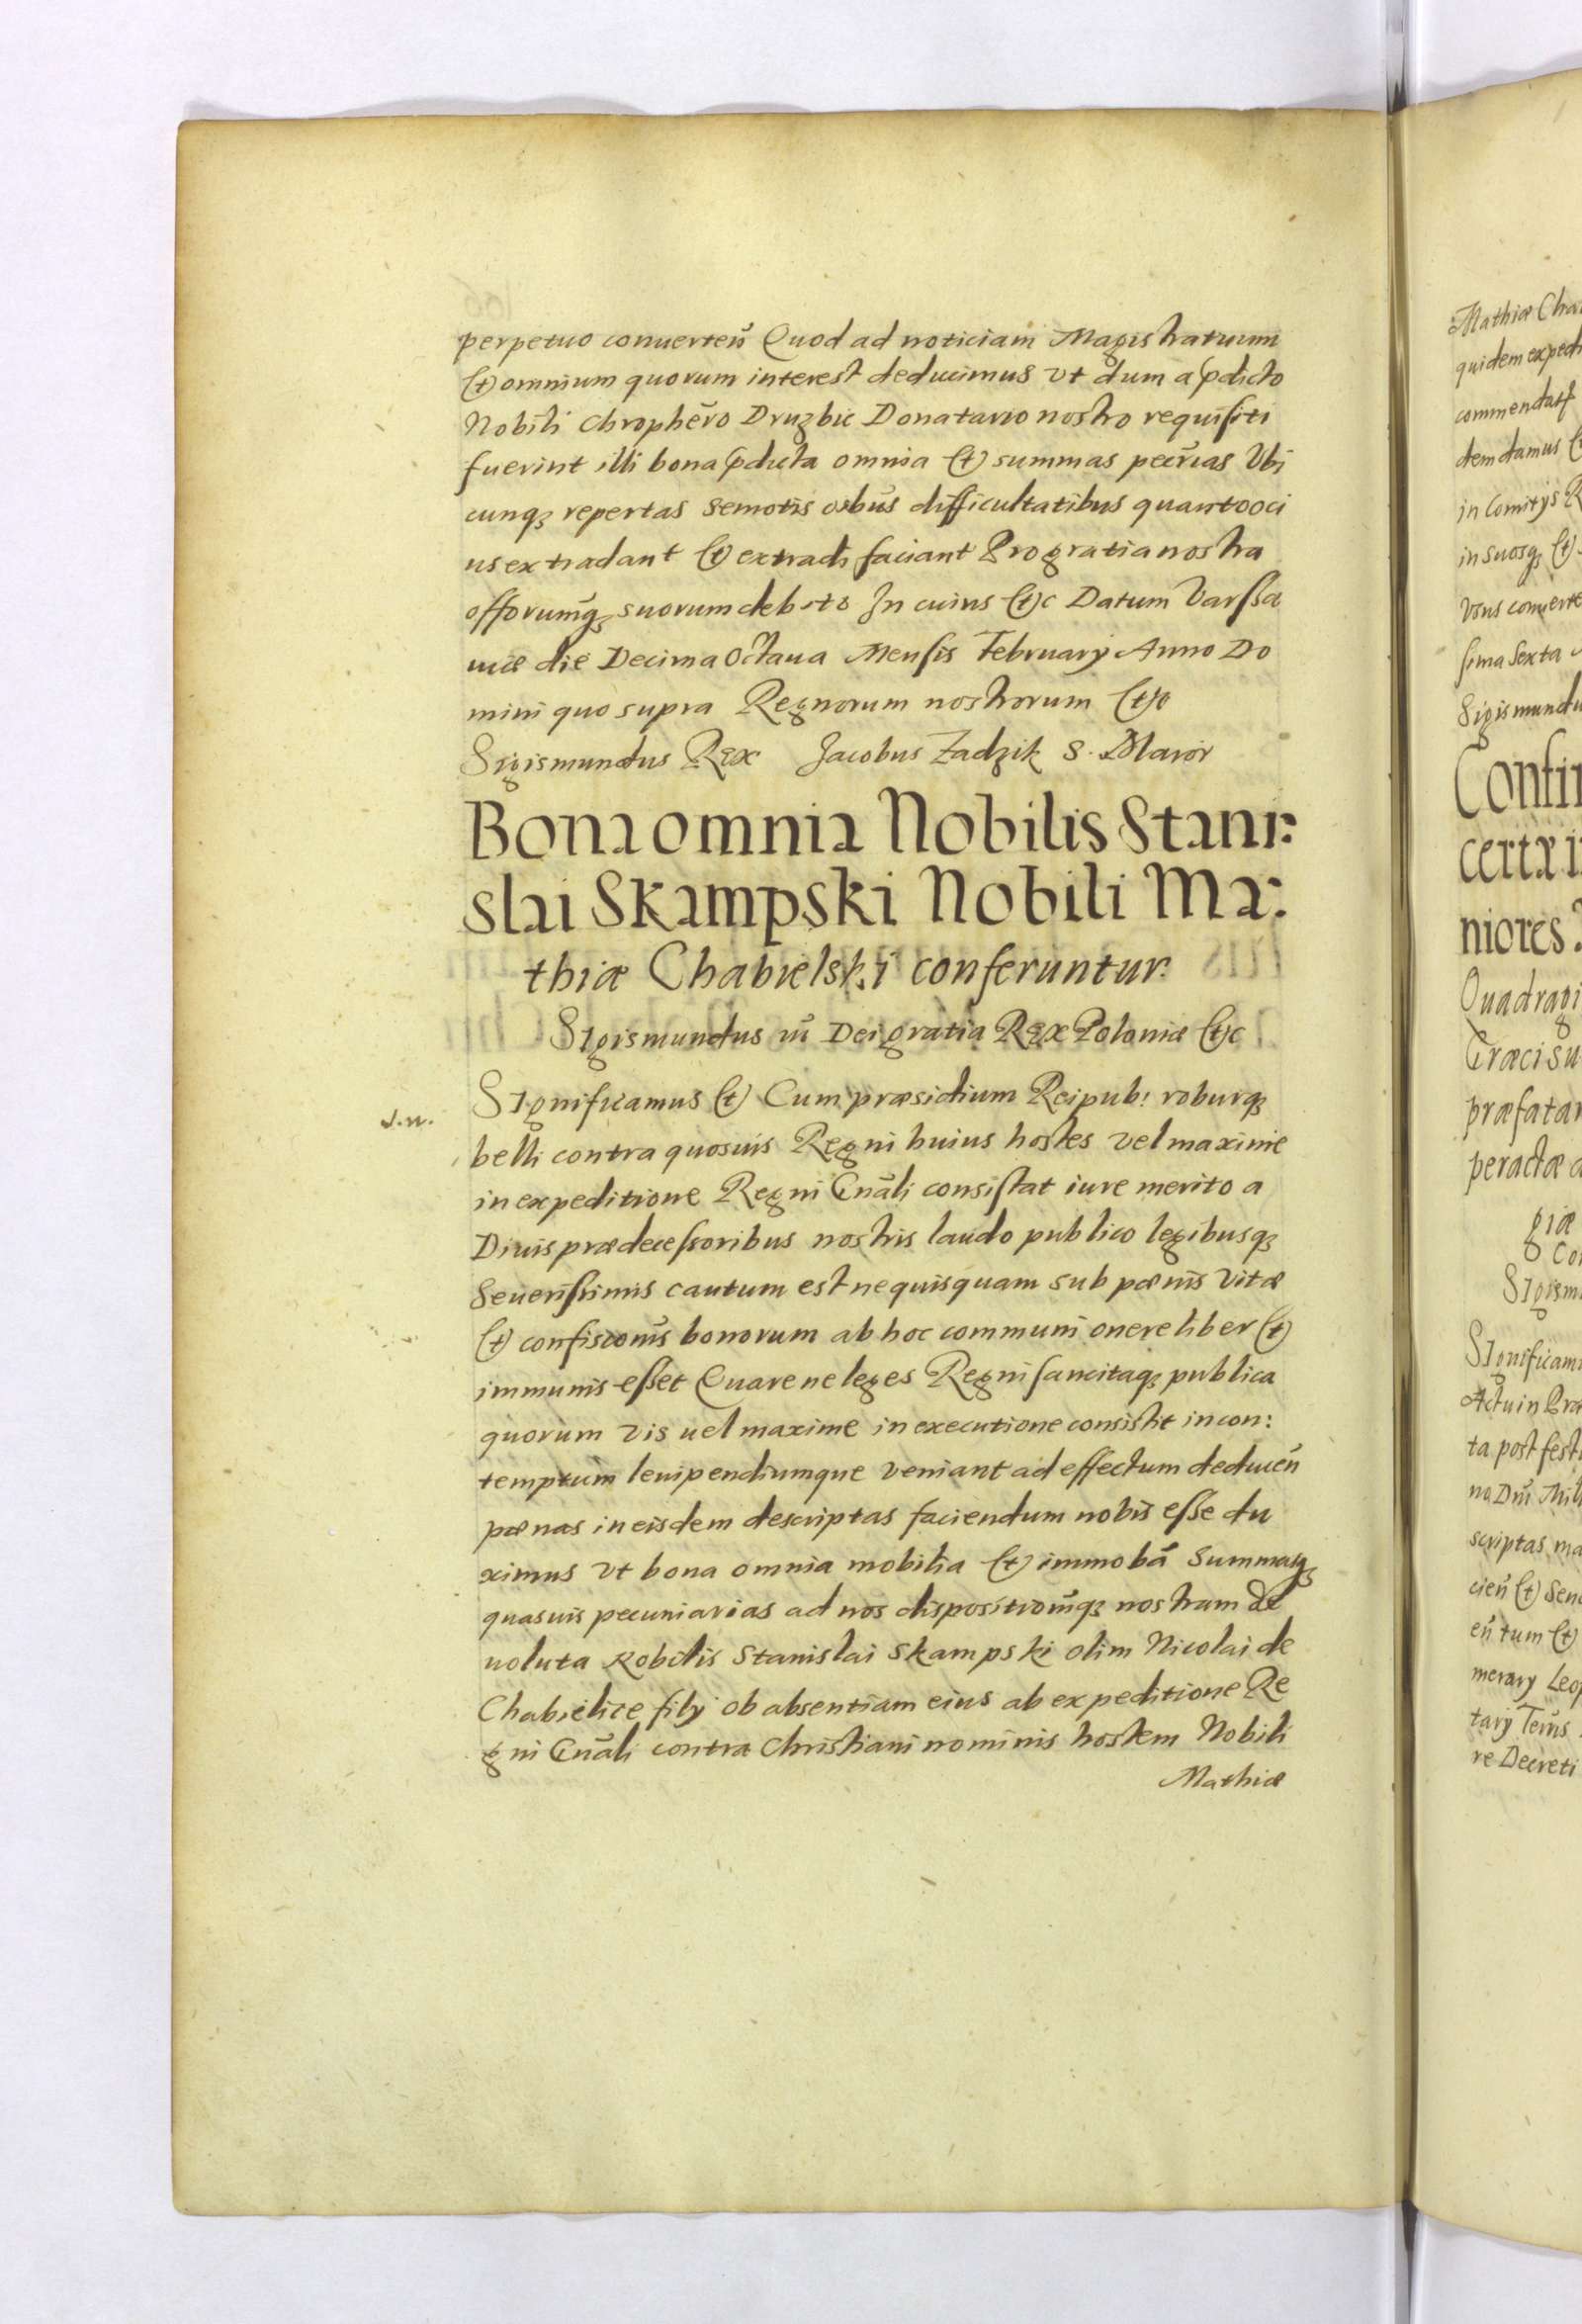 perpetuo conuerteñ Quod ad noticiam Magistratuum
(et) omnium quorum interest deducimus vt dum a pdicto
Nobili Chrophēro Druzbic Donatario nostro requisiti
fuerint illi bona pdicta omnia (et) summas pecrias Vbi
cunqȝ repertas semotis oībus difficultatibus quantooci
us extradant (et) extradi faciant Pro gratia nostra
offorumqȝ suorum debito In cuius (et)c Datum Varssa
uiæ die Decima Octaua Mensis February Anno Do
mini quo supra Regnorum nostrorum (et)c
Sigismundus Rex Jacobus Zadzik S. Maior
Bona omnia Nobilis Stani:
slai Skampski Nobili Ma:
thiæ Chabielski conferuntur.
Sigismundus iii Dei gratia Rex Poloniæ (et)c
Significamus (et) Cum præsidium Reipub: roburqȝ
belli contra quosuis Regni huius hostes vel maxime
in expeditione Regni Gnāli consistat iure merito a
Diuis prædecessoribus nostris laudo publico legibusqȝ
seuerissimis cautum est ne quisquam sub pænis vitæ
(et) confiscōnis bonorum ab hoc communi onere liber (et)
immunis esset Quare ne leges Regni sancitaqȝ publica
quorum vis uel maxime in executione consistit in con:
temptum leuipendiumque veniant ad effectum deduceñ
pænas in eisdem descriptas faciendum nobis esse du
ximus vt bona omnia mobilia (et) immobā summasqȝ
quasuis pecuniarias ad nos dispositionēqȝ nostram de
uoluta Nobilis Stanislai Skampski olim Nicolai de
Chabielice filÿ ob absentiam eius ab expeditione Re
gni Gnāli contra Christiani nominis hostem Nobili
Mathiæ